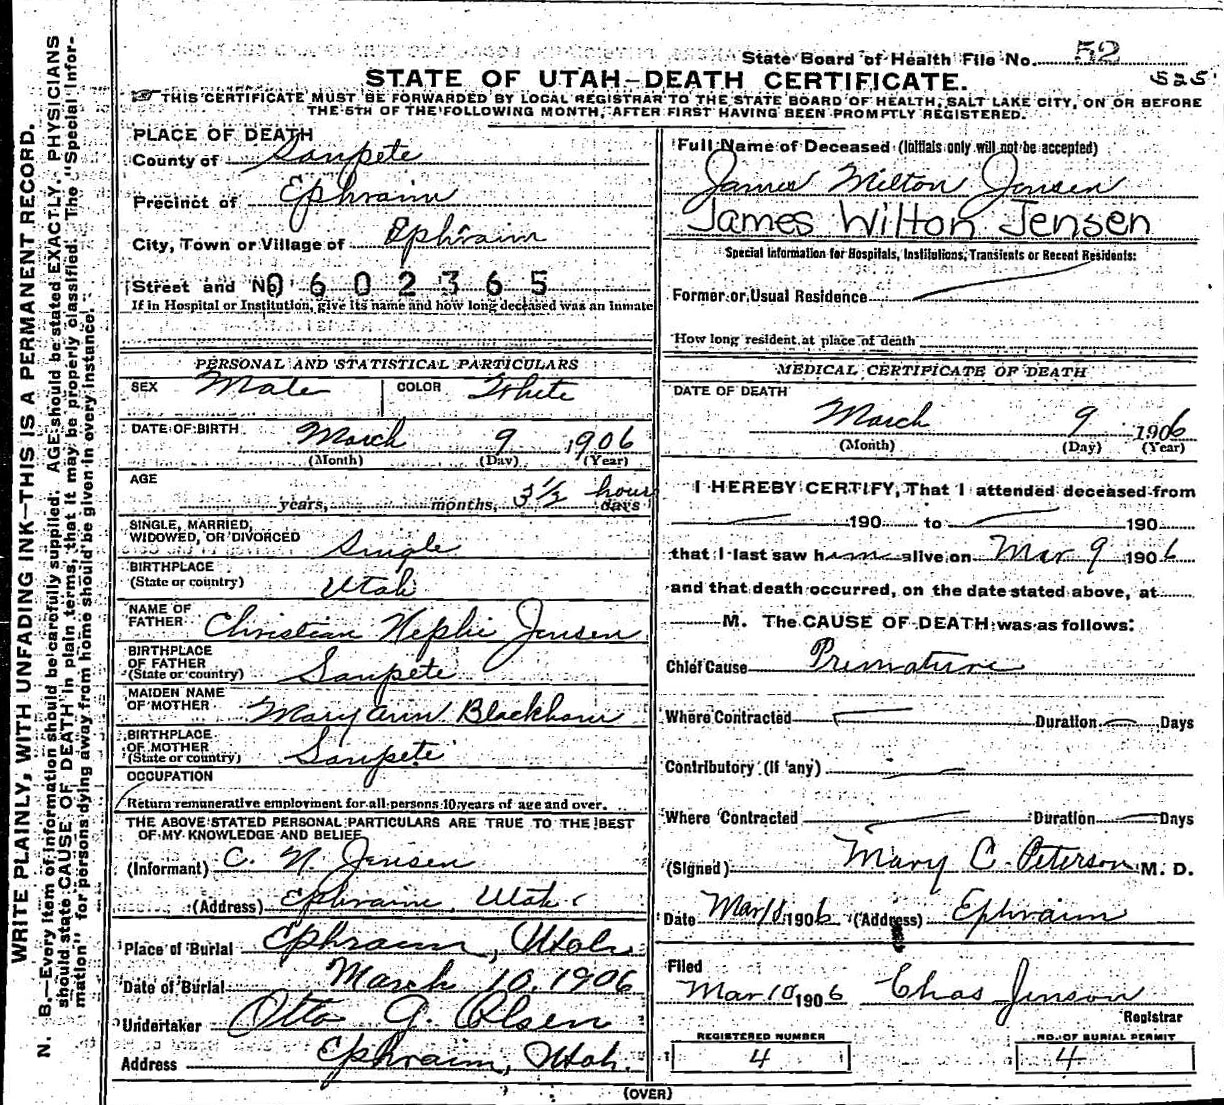 State Board of Health File No. 52
525
STATE OF UTAH—DEATH CERTIFICATE.
THIS CERTIFICATE MUST BE FORWARDED BY LOCAL REGISTRAR TO THE STATE BOARD OF HEALTH, SALT LAKE CITY, ON OR BEFORE
THE 5TH OF THE FOLLOWING MONTH, AFTER FIRST HAVING BEEN PROMPTLY REGISTERED.
WRITE PLAINLY, WITH UNFADING INK—THIS IS A PERMANENT RECORD.
N. B.—Every item of information should be carefully supplied. AGE should be stated EXACTLY. PHYSICIANS
should state CAUSE OF DEATH in plain terms, that it may be properly classified. The "Special Infor-
mation" for persons dying away from home should be given in every instance.
PLACE OF DEATH
County of Sanpete
Precinct of Ephraim
City, Town or Village of Ephraim
Street and No. 0602365
If in Hospital or Institution, give its name and how long deceased was an inmate
PERSONAL AND STATISTICAL PARTICULARS
SEX Male COLOR White
DATE OF BIRTH March 9 1906
(Month) (Day) (Year)
AGE
years, months, 3½ hours days
SINGLE, MARRIED,
WIDOWED, OR DIVORCED Single
BIRTHPLACE
(State or country) Utah
NAME OF
FATHER Christian Nephi Jensen
BIRTHPLACE
OF FATHER
(State or country) Sanpete
MAIDEN NAME
OF MOTHER Mary Ann Blackham
BIRTHPLACE
OF MOTHER
(State or country) Sanpete
OCCUPATION
Return remunerative employment for all persons 10 years of age and over.
THE ABOVE STATED PERSONAL PARTICULARS ARE TRUE TO THE BEST
OF MY KNOWLEDGE AND BELIEF
(Informant) C. N. Jensen
(Address) Ephraim, Utah
Place of Burial Ephraim, Utah
Date of Burial March 10, 1906
Undertaker Otto G. Olsen
Address Ephraim, Utah.
Full Name of Deceased (Initials only will not be accepted)
James Milton Jensen
James Wilton Jensen
Special Information for Hospitals, Institutions, Transients or Recent Residents:
Former or Usual Residence
How long resident at place of death
MEDICAL CERTIFICATE OF DEATH
DATE OF DEATH
March 9 1906
(Month) (Day) (Year)
I HEREBY CERTIFY, That I attended deceased from
190 to 190
that I last saw him alive on Mar 9 1906
and that death occurred, on the date stated above, at
M. The CAUSE OF DEATH was as follows:
Chief Cause Premature
Where Contracted Duration Days
Contributory (If any)
Where Contracted Duration Days
(Signed) Mary C. Peterson M. D.
Date Mar 1906 (Address) Ephraim
Filed
Mar 10 1906 Chas Jenson
Registrar
REGISTERED NUMBER
4
NO. OF BURIAL PERMIT
4
(OVER)